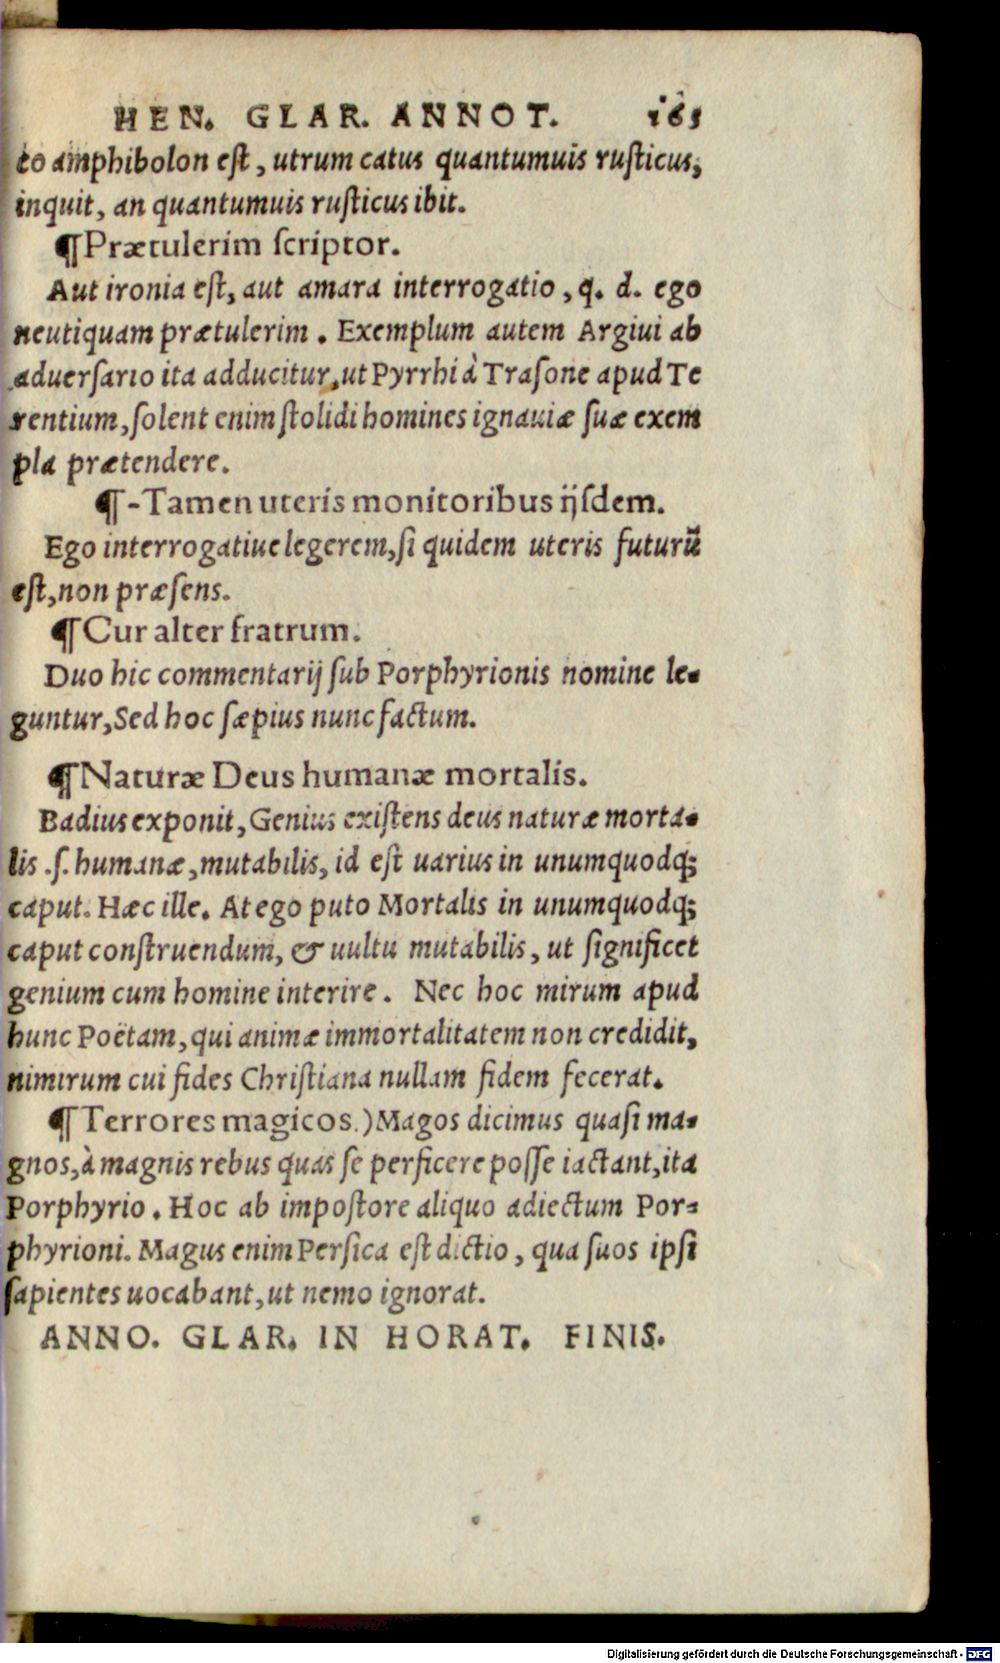 HEN. GLAR. ANNOT. 165
to amphibolon eſt, utrum catus quantumuis ruſticus,
inquit, an quantumuis ruſticus ibit.
¶Prætulerim ſcriptor.
Aut ironia eſt, aut amara interrogatio, q. d. ego
neutiquam prætulerim. Exemplum autem Argiui ab
aduerſario ita adducitur, ut Pyrrhi à Traſone apud Te
rentium, ſolent enim ſtolidi homines ignauiæ ſuæ exem
pla prætendere.
¶-Tamen uteris monitoribus ijſdem.
Ego interrogatiue legerem, ſi quidem uteris futurũ
eſt, non præſens.
¶Cur alter fratrum.
Duo hic commentarij ſub Porphyrionis nomine le-
guntur, Sed hoc ſæpius nunc factum.
¶Naturæ Deus humanæ mortalis.
Badius exponit, Genius exiſtens deus naturæ morta-
lis .ſ. humanæ, mutabilis, id eſt uarius in unumquodq;
caput. Hæc ille. At ego puto Mortalis in unumquodq;
caput conſtruendum, & uultu mutabilis, ut ſignificet
genium cum homine interire. Nec hoc mirum apud
hunc Poëtam, qui animæ immortalitatem non credidit,
nimirum cui fides Chriſtiana nullam fidem fecerat.
¶Terrores magicos.) Magos dicimus quaſi ma-
gnos, à magnis rebus quas ſe perficere poſſe iactant, ita
Porphyrio. Hoc ab impoſtore aliquo adiectum Por-
phyrioni. Magus enim Perſica eſt dictio, qua ſuos ipſi
ſapientes uocabant, ut nemo ignorat.
ANNO. GLAR. IN HORAT. FINIS.
Digitalisierung gefördert durch die Deutsche Forschungsgemeinschaft - DFG